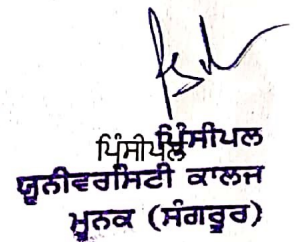 ਪ੍ਰਿੰਸੀਪਲ
ਪ੍ਰਿੰਸੀਪਲ
ਯੂਨੀਵਰਸਿਟੀ ਕਾਲਜ
ਮੂਨਕ (ਸੰਗਰੂਰ)